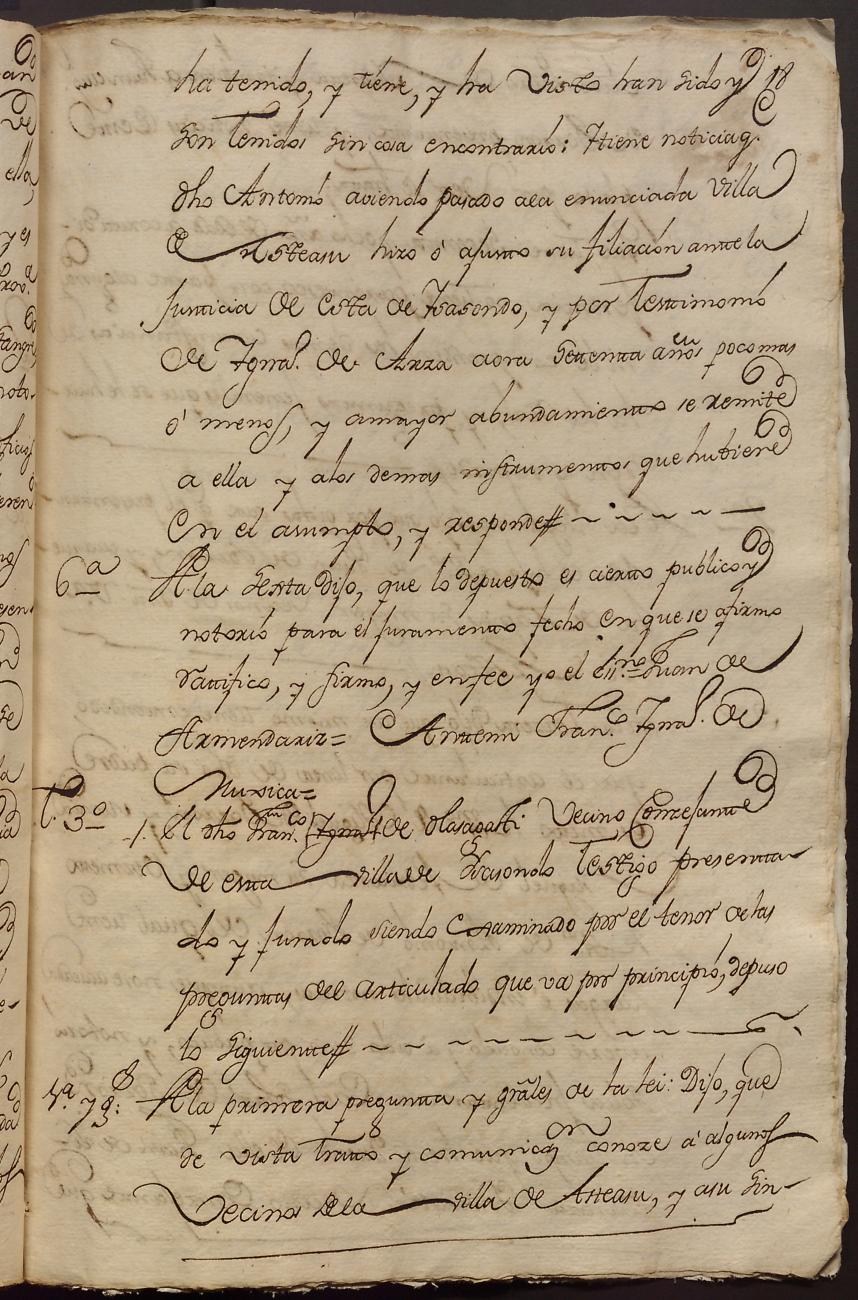 18
ha tenido, y tiene, y ha visto han sido y
son tenidos sin cosa encontrario: Ytiene noticia q.
dho Antonio aviendo pasado ala enunciada Villa
de Asteasu hizo ô asunto su filiación ante la
Justicia de esta de Ysasondo, y por Testimonio
de Ygna.º de Arza aora setenta años poco mas
ô menos, y amayor abundamiento se remite
a ella y alos demas instrumentos que hubiere
en el asumpto, y responde# ~ ~ ~ ~ ~
6ª Ala Sexta Dijo, que lo depuesto es cierto publico y
notorio para el Juramento fecho en que se afirmo
ratificó, y firmo, y enfee yo el essno Juan de
Armendariz= Antemi Franco Ygnaº de
Muxica=
T. 3º 1. El dho Franco Ygnaº de Olasagasti Vecino Conzejante
de esta villa de Ysasondo Testigo presenta-
do y Jurado siendo Examinado por el tenor de las
preguntas del articulado que va por principio, depuso
lo siguiente# ~ ~ ~ ~ ~ ~ ~
1ª y gs: Ala primera pregunta y grāles de la lei: Dijo, que
de vista trato y comunicaon conoze á algunos
Vecinos dela villa de Asteasu, y asu Sin-